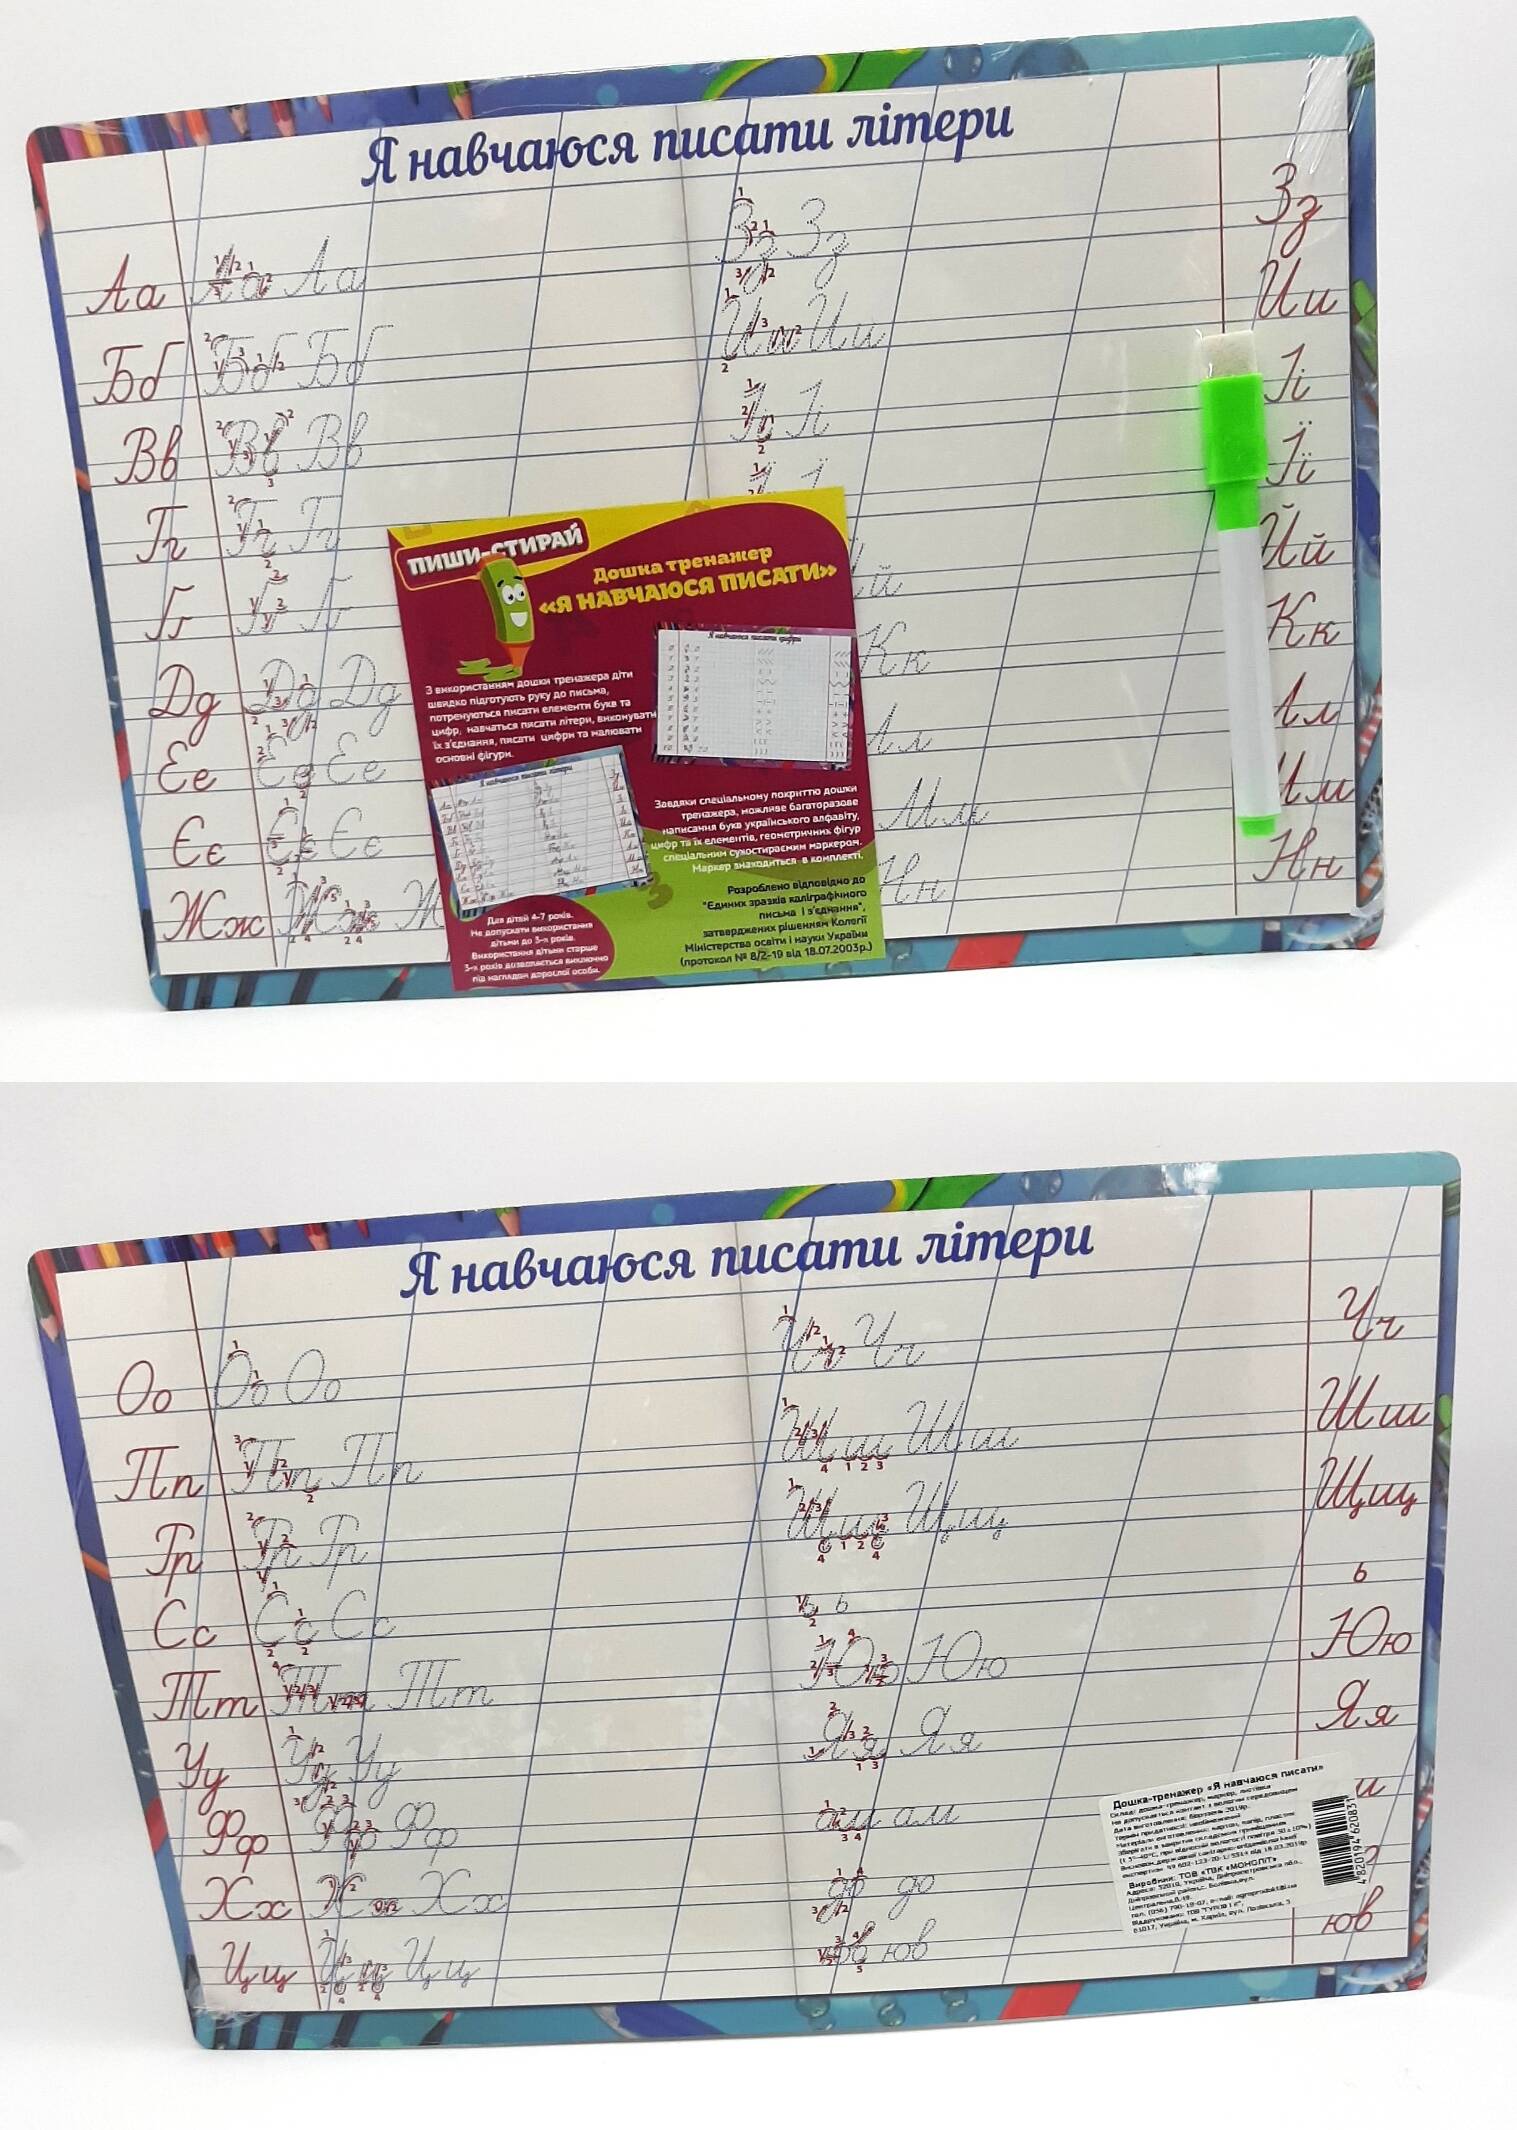 Я навчаюся писати літери
Аа Аа Аа
Бб Бб Бб
Вв Вв Вв
Гг Гг Гг
Ґґ Ґґ Ґґ
Дд Дд Дд
Ее Ее Ее
Єє Єє Єє
Жж Жж Ж
Зз Зз Зз
Ии Ии Ии
Іі Іі Іі
Її
Йй
Кк Кк
Лл Лл
Мм Мм
Нн Нн
ПИШИ-СТИРАЙ
Дошка тренажер
«Я НАВЧАЮСЯ ПИСАТИ»
З використанням дошки тренажера діти
швидко підготують руку до письма,
потренуються писати елементи букв та
цифр, навчаться писати літери, виконувати
їх з'єднання, писати цифри та малювати
основні фігури.
Я навчаюся писати цифри
Я навчаюся писати літери
Завдяки спеціальному покриттю дошки
тренажера, можливе багаторазове
написання букв українського алфавіту,
цифр та їх елементів, геометричних фігур
спеціальним сухостираємим маркером.
Маркер знаходиться в комплекті.
Для дітей 4-7 років.
Не допускати використання
дітьми до 3-х років.
Використання дітьми старше
3-х років дозволяється виключно
під наглядом дорослої особи.
Розроблено відповідно до
"Єдиних зразків каліграфічного
письма і з'єднання",
затверджених рішенням Колегії
Міністерства освіти і науки України
(протокол № 8/2-19 від 18.07.2003р.)
Я навчаюся писати літери
Оо Оо Оо
Пп Пп Пп
Рр Рр Рр
Сс Сс Сс
Тт Тт Тт
Уу Уу Уу
Фф Фф Фф
Хх Хх Хх
Цц Цц Цц
Чч Чч Чч
Шш Шш Шш
Щщ Щщ Щщ
ь ь ь
Юю Юю Юю
Яя Яя Яя
ам ам
до до
юв юв юв
Дошка-тренажер «Я навчаюся писати»
Склад: дошка-тренажер, маркер, листівка
Не допускається контакт з вологим середовищем
Дата виготовлення: березень 2019р.
Термін придатності: необмежений
Матеріали виготовлення: картон, папір, пластик
Виробник: ТОВ «ТВК «МОНОЛІТ»
4820194620831